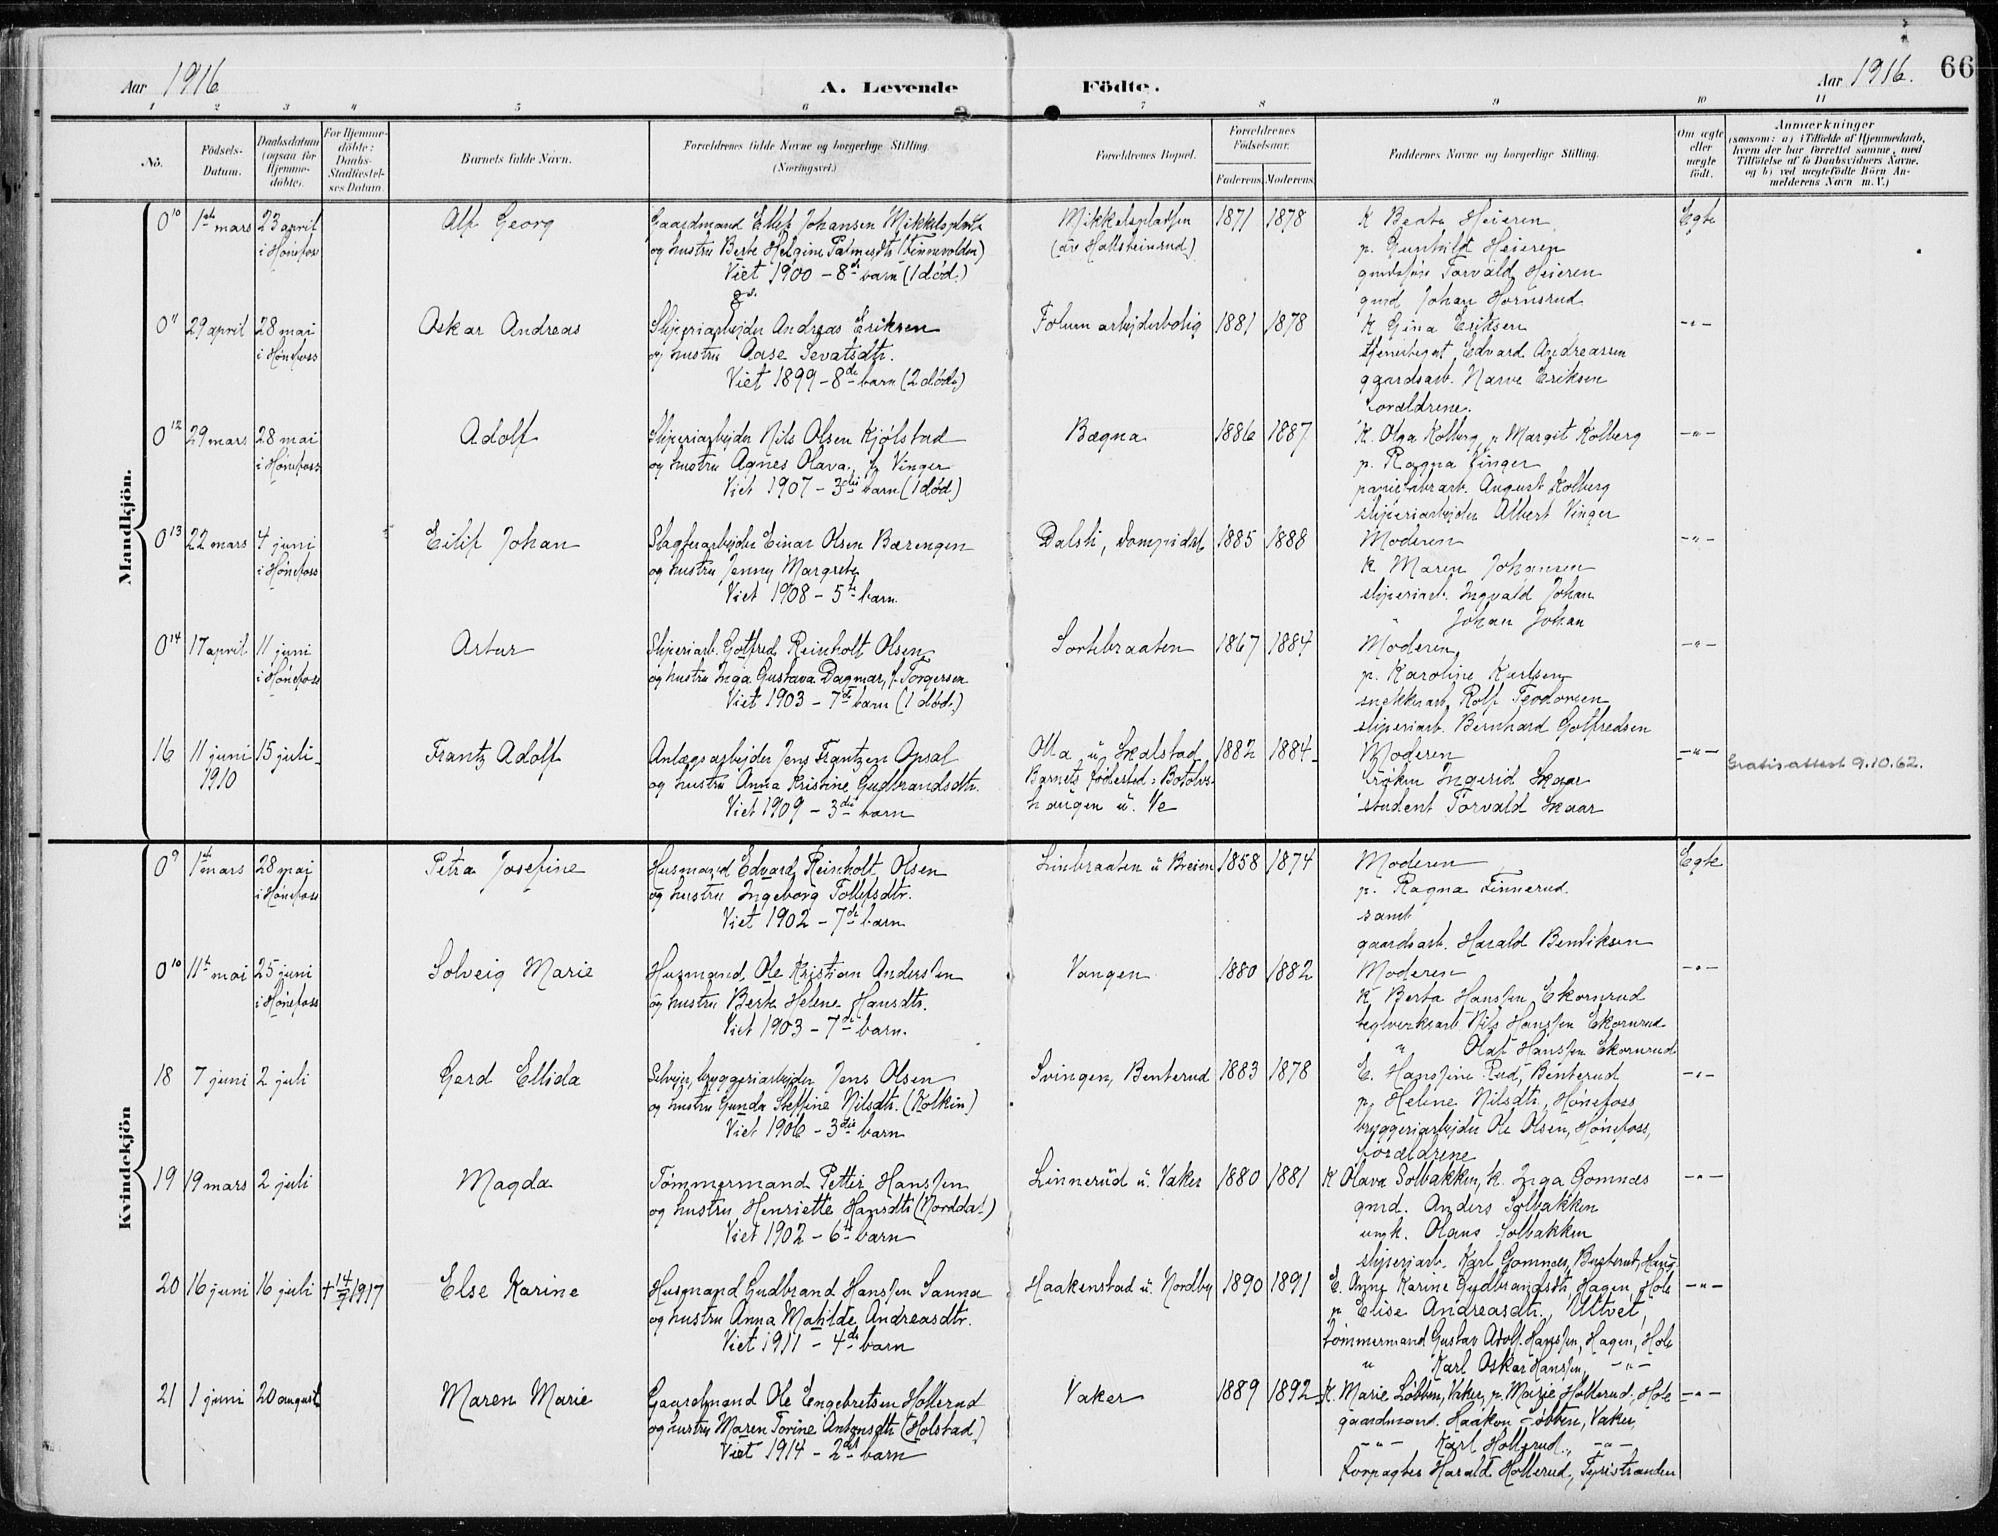 Aar 1916
A. Levende Födte.
Aar 1916. 66
1 2 3 4 5 6 7 8 9 10 11
No.
Födsels-Datum.
Daabsdatum (ogsaa for Hjemme-döbte).
For Hjemme-döbte: Daabs-Stadfæstel-ses Datum.
Barnets fulde Navn.
Forældrenes fulde Navne og borgerlige Stilling.
(Næringsvei.)
Forældrenes Bopæl.
Forældrenes Födselsaar.
Faderens Moderens
Faddernes Navne og borgerlige Stilling.
Om ægte eller uægte födt.
Anmærkninger
(saasom: a) i Tilfælde af Hjemmedaab,
hvem der har forrettet samme, med
Tilföielse af to Daabsvidners Navne.
og b) ved uægtefödte Börn An-
melderens Navn m. V.)
Mandkjön.
0 10 1ste mars 23 april i Hønefoss Alf Georg
Gaardmand Eilif Johansen Mikkelsplads
og hustru Berte Helgine Palmesdtr (Finnevolden)
Viet 1900 – 8de barn (1 død.)
Mikkelspladsen
(av Hallsteinrud)
1871 1878
K Beate Heieren
p. Gunhild Heieren
Torvald Heieren
gmd Johan Hornsrud
Egte
0 11 29 april 28 mai i Hønefoss Oskar Andreas
Sliperiarbejder Andreas Eriksen
og hustru Aase Sevatsdtr.
Viet 1899 – 8de barn (2 døde)
Folum arbejderbolig
1881 1878
K Gina Eriksen
Edvard Andreassen
gaardsarb. Narve Eriksen
Forældrene.
–"–
0 12 29 mars 28 mai i Hønefoss Adolf
Sliperiarbejder Nils Olsen Kjølstad
og hustru Agnes Olava, f. Vinger
Viet 1907 – 3die barn (1 død)
Bægna
1886 1887
K. Olga Kolberg, p. Margit Kolberg
p. Ragna Vinger
August Kolberg
sliperiarbejder Albert Vinger
–"–
0 13 22 mars 4 juni i Hønefoss Eilif Johan
Einar Olsen Bærengen
og hustru Jenny Margrete
Viet 1908 – 5te barn.
Dalsli,
1885 1888
Moderen
K Maren Johansen
sliperiarb. Ingvald Johan
" Johan Johan
–"–
0 14 17 april 11 juni i Hønefoss Artur
Sliperiarb. Gotfred Reinholt Olsen
og hustru Inga Gustava Dagmar, f. Torgersen
Viet 1903 – 7de barn (1 død.)
Sortebraaten
1867 1884
Moderen
p. Karoline Karlsen
snekkerarb. Rolf Teodorsen
sliperiarb. Bernhard Gotfredsen
–"–
16 11 juni 1910 15 juli Frantz Adolf
Anlægsarbejder Jens Frantzen Opsal
og hustru Anna Kristine Gudbrandsdtr.
Viet 1909 – 3die barn
Olla u. Skalstad
Barnets fødested: Botolvs-
haugen u. Ve
1882 1884
Moderen
frøken Ingerid Skaar
student Torvald Skaar
–"–
Gratisattest 9.10.62.
Kvindekjön
0 9 1ste mars 28 mai i Hønefoss Petra Josefine
Husmand Edvard Reinholt Olsen
og hustru Ingeborg Tollefsdtr.
Viet 1902 – 7de barn
Linbraaten u Breien
1858 1874
Moderen
p. Ragna Finnerud.
samt
gaardsarb. Harald Bendiksen
Egte
0 10 11te mai 25 juni i Hønefoss Solveig Marie
Husmand Ole Kristian Anderssen
og hustru Berte Helene Hansdtr.
Viet 1903 – 7de barn.
Vangen
1880 1882
Moderen
K. Berta Hanssen Ekornrud
teglverksarb. Nils Hanssen Ekornrud
" Olaf Hanssen Ekornrud
–"–
18 7 juni 2 juli Gerd Ellida
Selveier, bryggeriarbejder Jens Olsen
og hustru Gunda Steffine Nilsdtr. (Kolkin)
Viet 1906 – 3die barn
Svingen, Benterud
1883 1878
E. Hanssine Rud, Benterud
p. Helene Nilsdtr, Hønefoss
bryggeriarbejder Ole Olsen, Hønefoss,
forældrene
–"–
19 19 mars 2 juli Magda
Tømmermand Petter Hanssen
og hustru Henriette Hansdtr (Norddal)
Viet 1902 – 6te barn
Linnerud u. Vaker
1880 1881
K Olava Solbakken, k. Inga Gomnæs
gmd. Anders Solbakken
umk. Olaus Solbakken
sliperiarb. Karl Gomnæs, Busterud, Haug
–"–
20 16 juni 16 juli + 14/9 1917 Else Karine
Husmand Gudbrand Hanssen Sanna
og hustru Anna Matilde Andreasdtr.
Viet 1911 – 4de barn
Haakenstad u. Nordby
1890 1891
E. Anne Karine Gudbrandsdtr, Hagen, Hole
p Elise Andreasdtr., Ultvet,
tømmermand Gustav Adolf Hanssen, Hagen, Hole
" Karl Oskar Hanssen, –"–
–"–
21 1 juni 20 august Maren Marie
Gaardmand Ole Engebretsen Hollerud
og hustru Maren Torine Antonsdtr (Holstad)
Viet 1914 – 2det barn
Vaker
1889 1892
K. Marie Løbben, Vaker, p. Marie Hollerud, Hole
gaardmand. Haakon Løbben, Vaker,
–"– Karl Hollerud, –"–
forpagter Harald Hollerud, Tyristranden
–"–